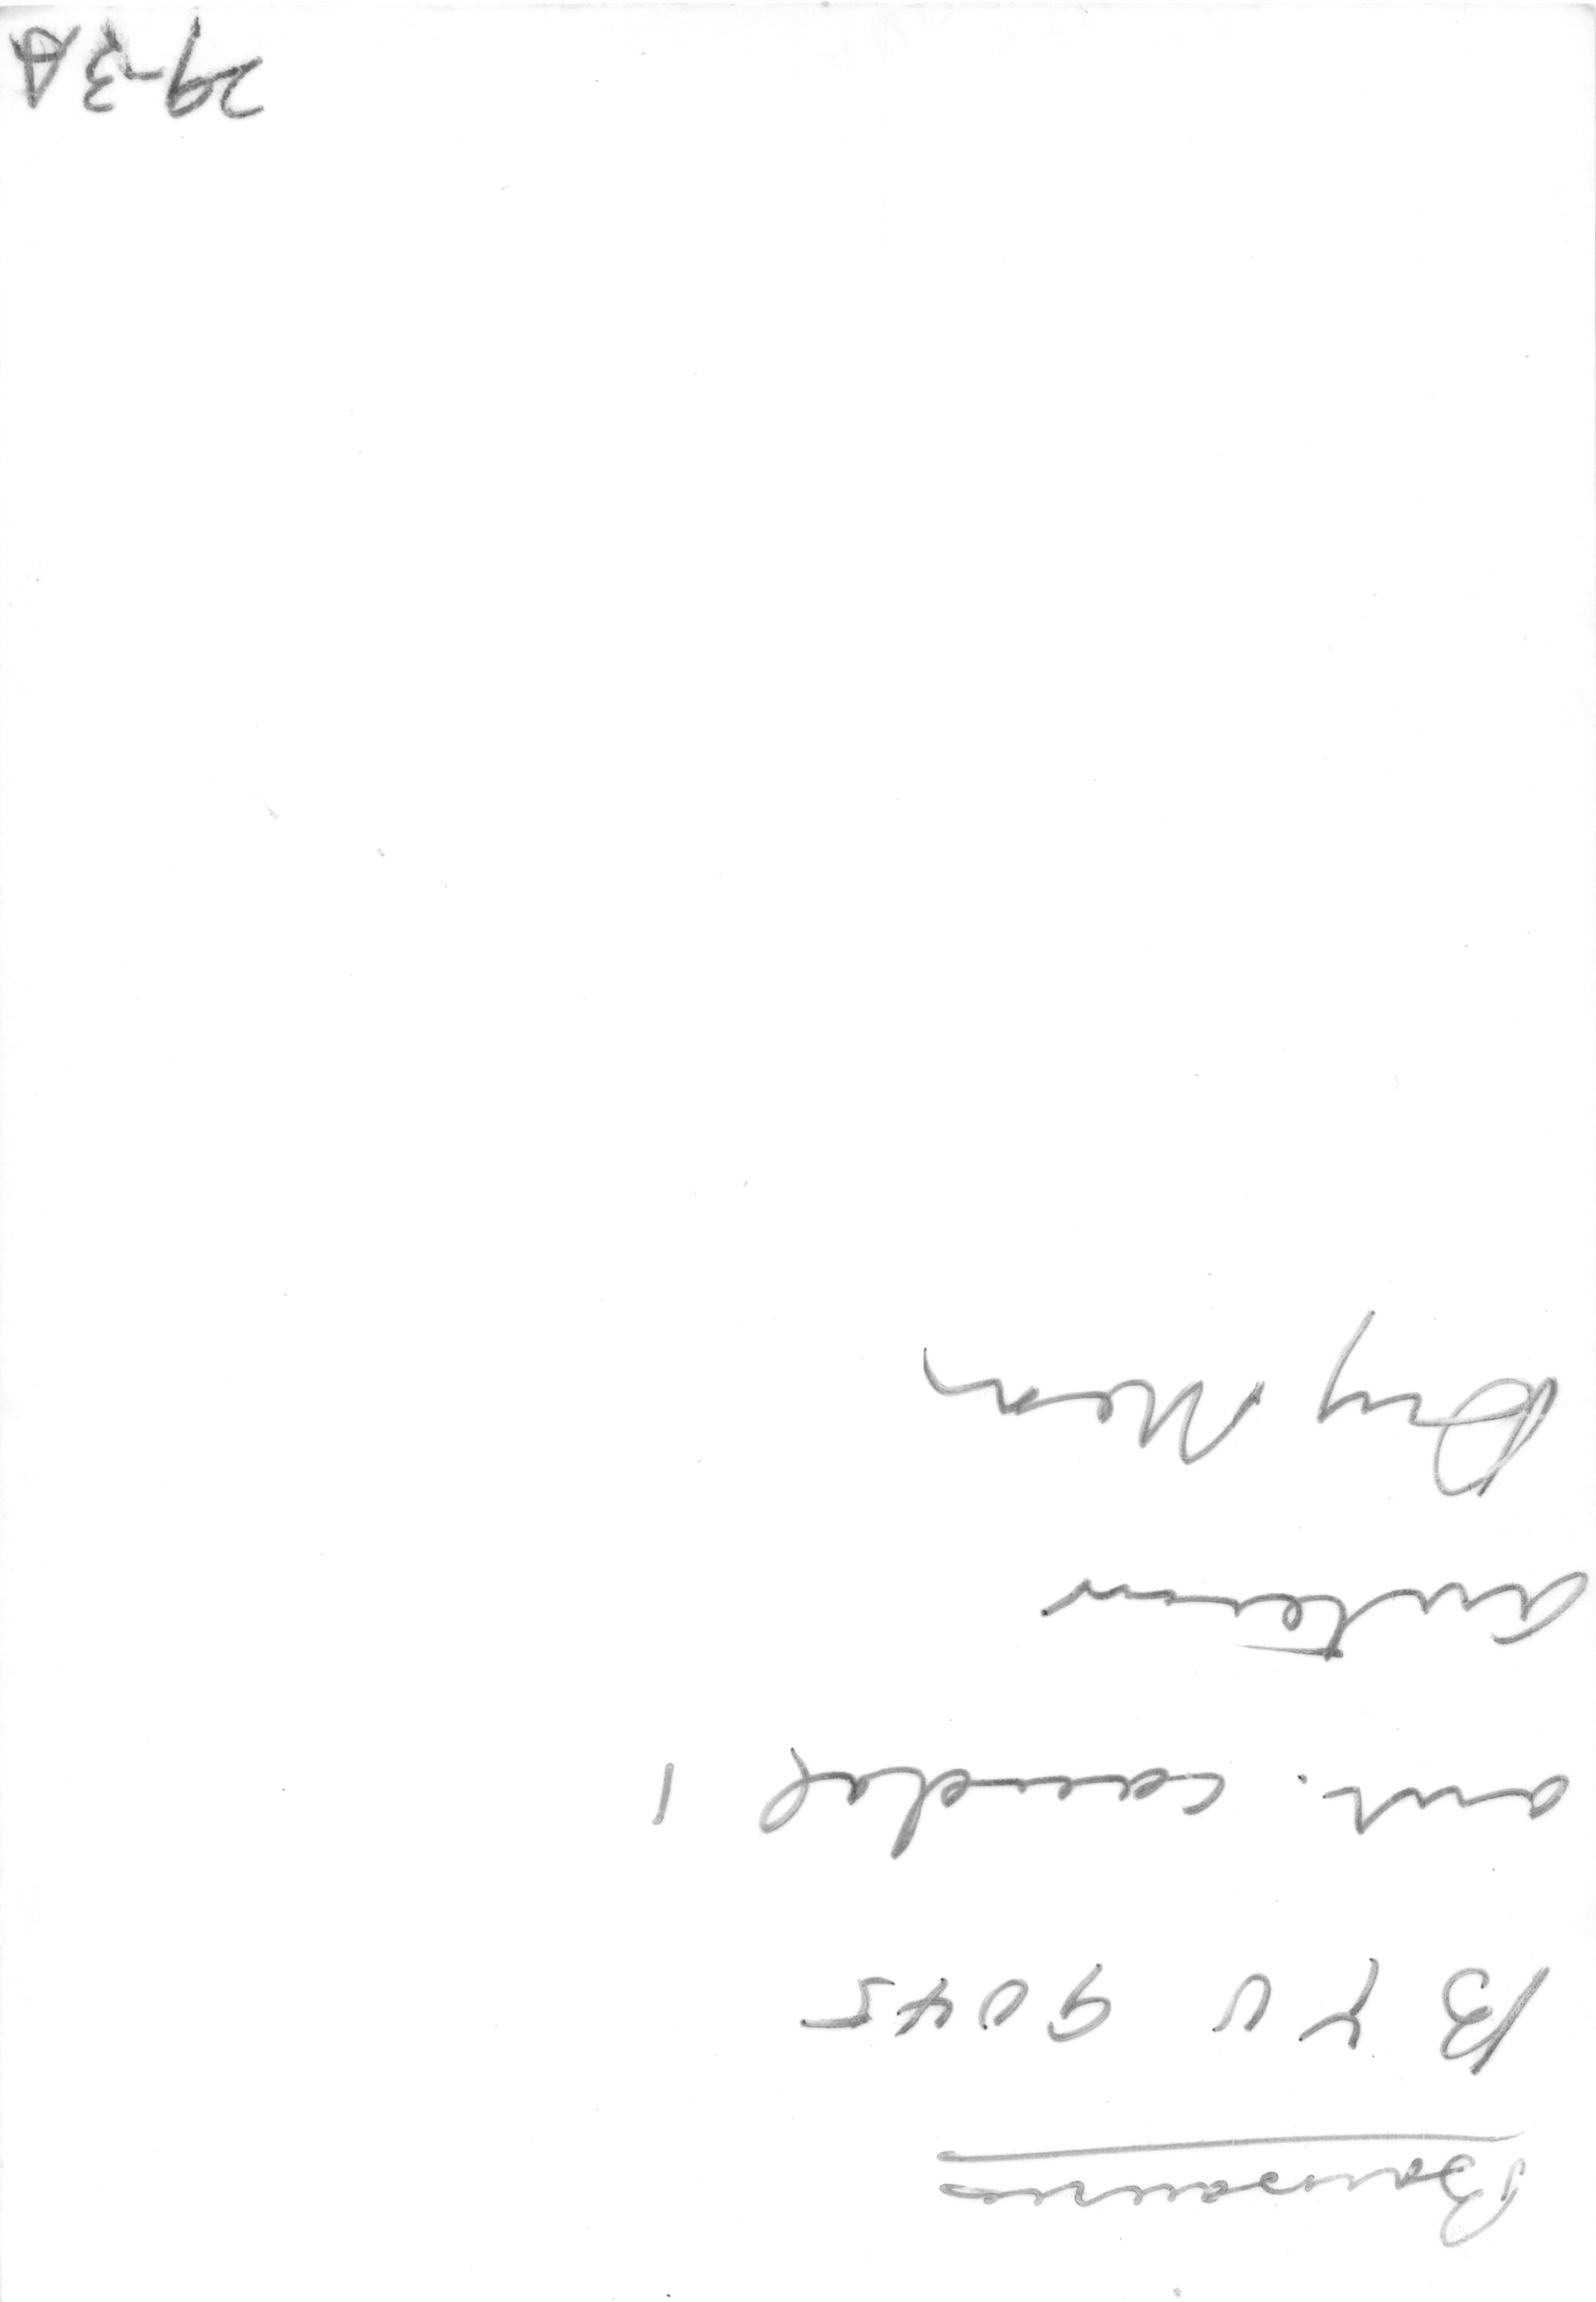 Barosaurus
BYU 9045
ant. caudal 1
anterior
Dry Mesa
29-3A